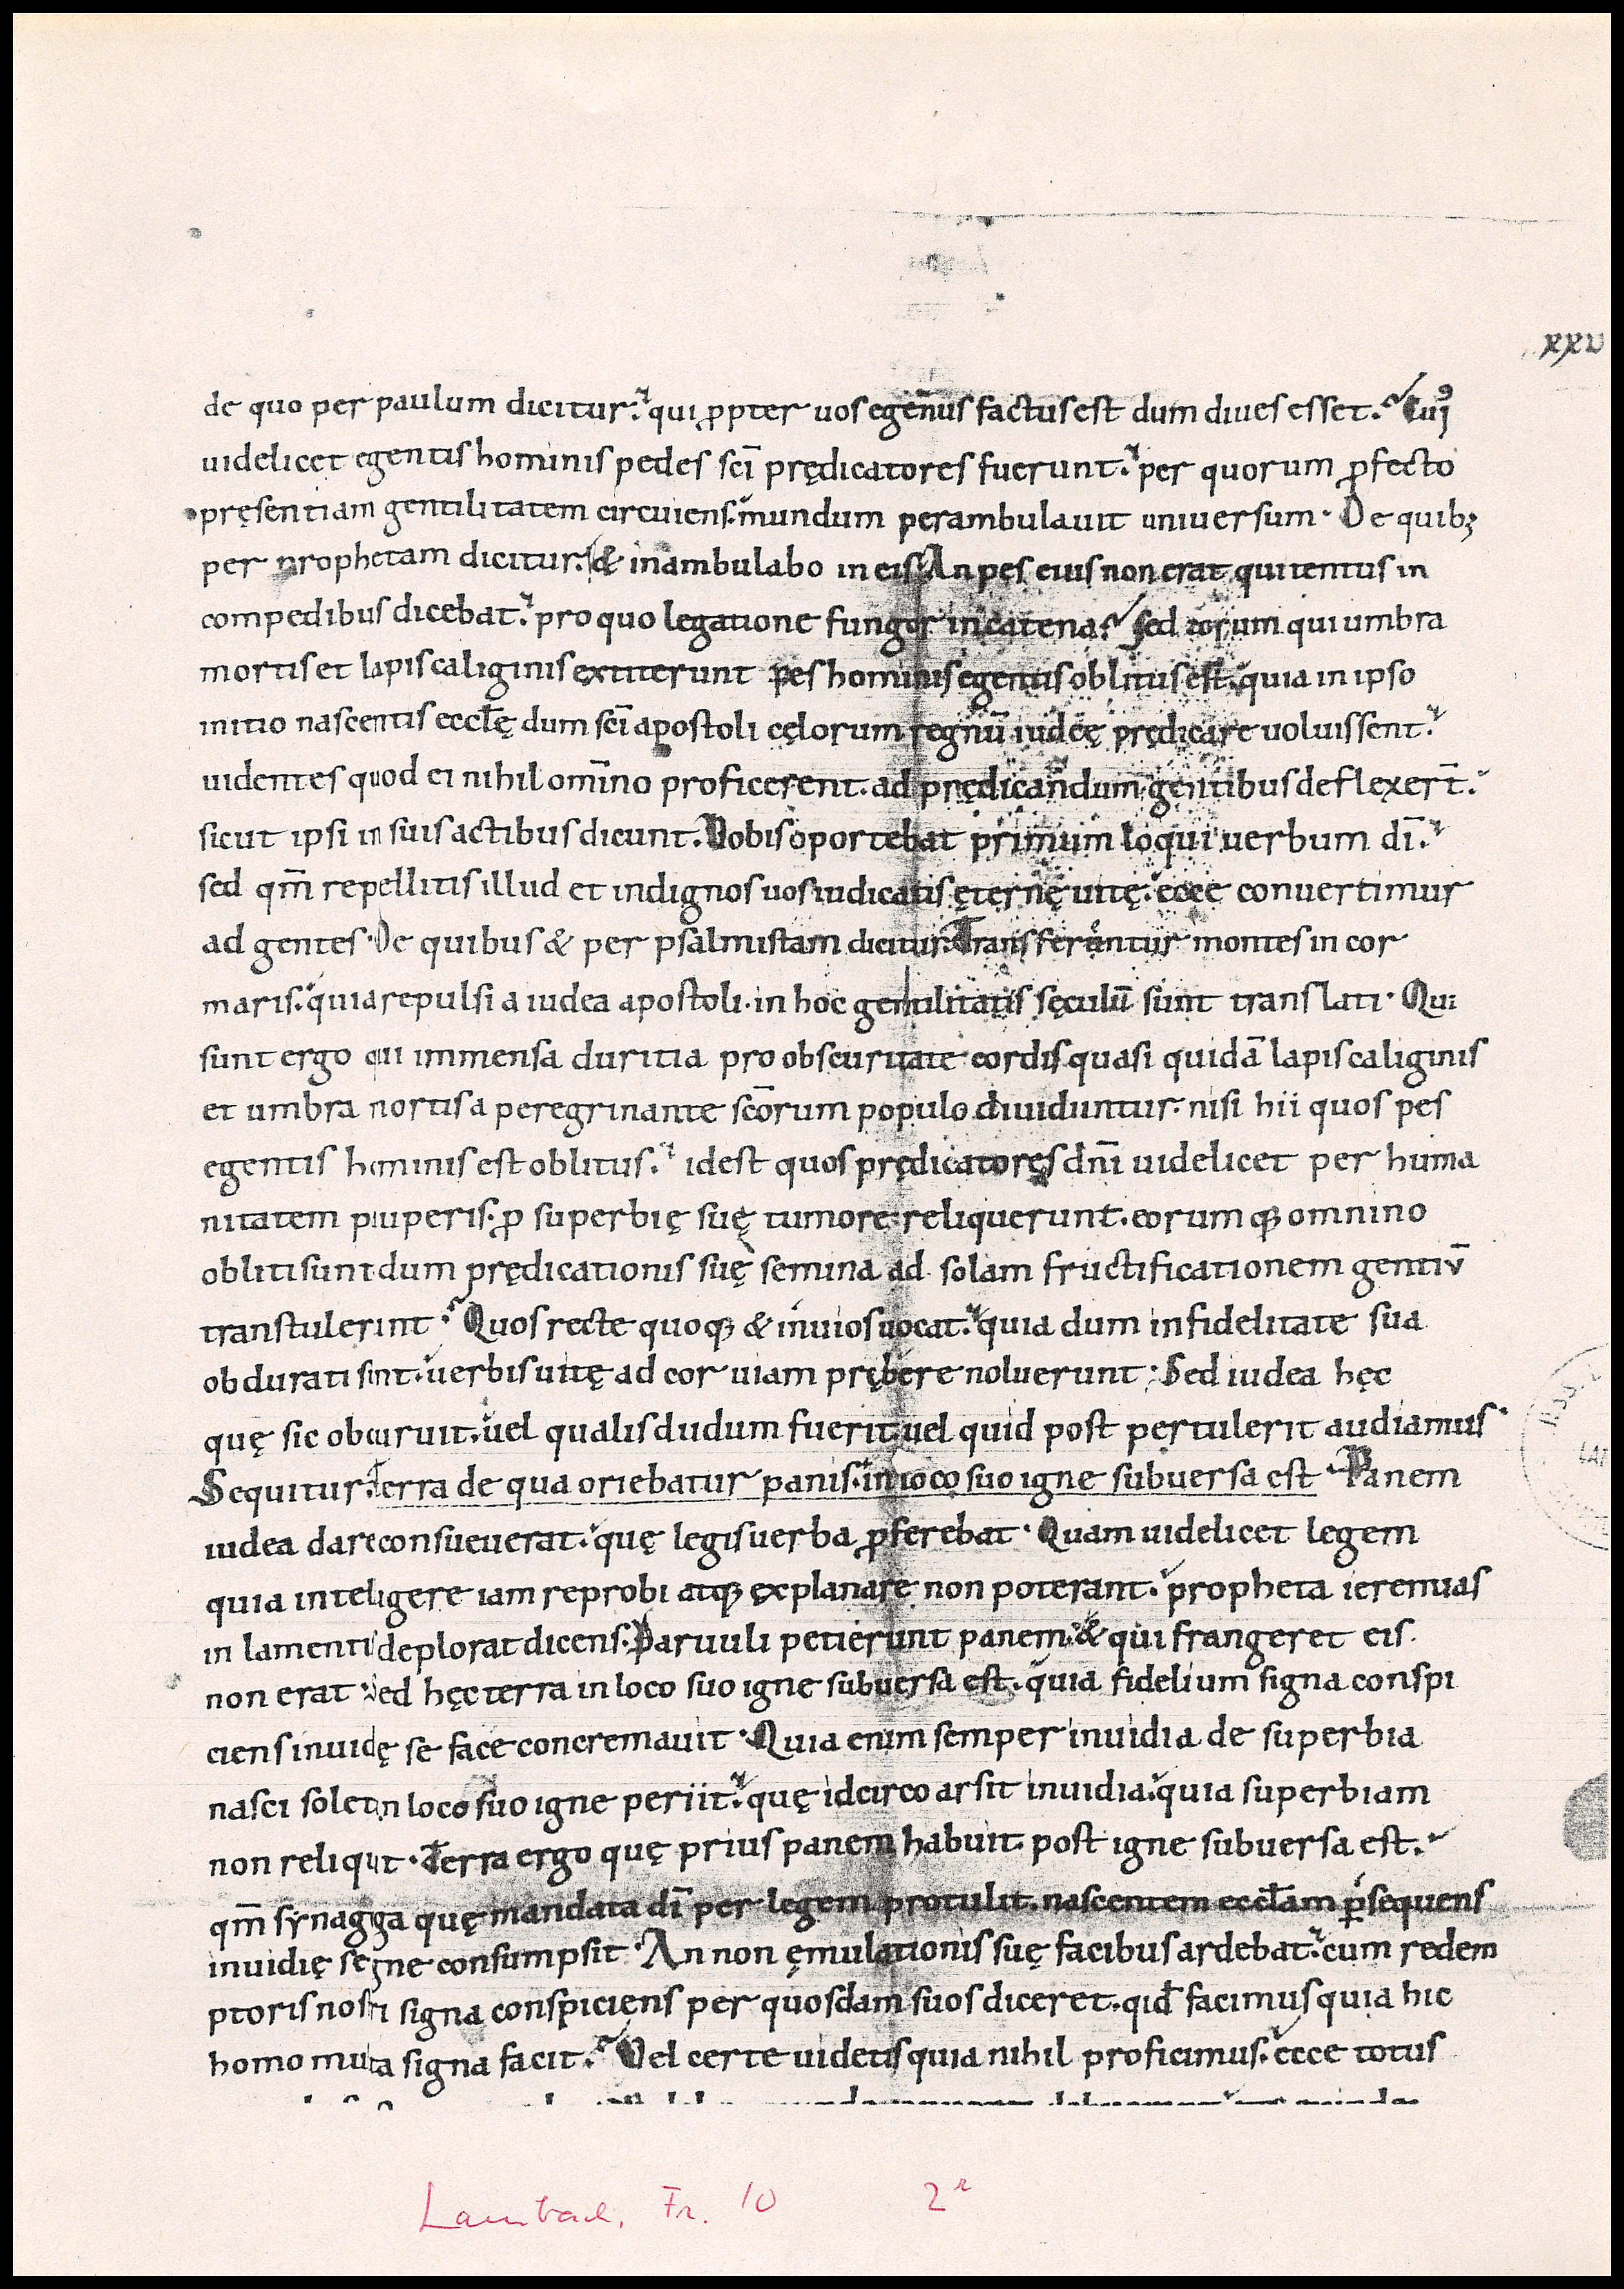 xxv
de quo per paulum dicitur. qui ꝓpter uos egen̄us factus est dum diues esset. Cuiꝰ
uidelicet egentis hominis pedes sc̄i prędicatores fuerunt. per quorum ꝓfecto
pręsentiam gentilitatem circuiens. mundum perambulauit uniuersum. De quibꝫ
per prophetam dicitur. & inambulabo in eis. An pes eius non erat qui tentus in
compedibus dicebat. pro quo legatione fungor in catena. Sed eorum qui umbra
mortis et lapis caliginis extiterunt pes hominis egentis oblitus est. quia in ipso
initio nascentis eccl̄ę dum sc̄i apostoli cęlorum regnū iudeę prędicare uoluissent.
uidentes quod ei nihil om̄ino proficerent. ad prędican̄dum gentibus deflexer̄t.
sicut ipsi in suis actibus dicunt. Vobis oportebat primum loqui uerbum dī.
sed qm̄ repellitis illud et indignos uos iudicatis ęternę uitę. ecce conuertimur
ad gentes. De quibus & per psalmistam dicitur. Transferentur montes in cor
maris. quia repulsi a iudea apostoli. in hoc gentilitatis sęculū sunt translati. Qui
sunt ergo qui immensa duritia pro obscuritate cordis quasi quidā lapis caliginis
et umbra mortis a peregrinante sc̄orum populo diuiduntur. nisi hii quos pes
egentis hominis est oblitus. idest quos prędicatores dn̄i uidelicet per huma
nitatem pauperis. ꝓ superbię suę tumore reliquerunt. eorumqꝫ omnino
obliti sunt dum prędicationis suę semina ad solam fructificationem gentiū
transtulerunt. Quos recte quoqꝫ & inuios uocat. quia dum infidelitate sua
obdurati sunt. uerbis uitę ad cor uiam prębere noluerunt. Sed iudea hęc
quę sic obduruit. uel qualis dudum fuerit. uel quid post pertulerit audiamus.
Sequitur. Terra de qua oriebatur panis. in loco suo igne subuersa est. Panem
iudea dare consueuerat. quę legis uerba ꝓferebat. Quam uidelicet legem
quia intelligere iam reprobi atqꝫ explanare non poterant. propheta ieremias
in lamenti deplorat dicens. Paruuli petierunt panem. & qui frangeret eis.
non erat. Sed hęc terra in loco suo igne subuersa est. quia fidelium signa conspi
ciens inuidę se face concremauit. Quia enim semper inuidia de superbia
nasci solet. in loco suo igne periit. quę idcirco arsit inuidia. quia superbiam
non reliquit. Terra ergo quę prius panem habuit. post igne subuersa est.
qm̄ synagoga quę mandata dī per legem protulit. nascentem eccl̄am ꝑsequens
inuidię se igne consumpsit. An non ęmulationis suę facibus ardebat. cum redem
ptoris nostri signa conspiciens per quosdam suos diceret. qid̄ facimus quia hic
homo multa signa facit. Vel certe uidetis quia nihil proficimus. ecce totus
Lambach, Fr. 10 2r